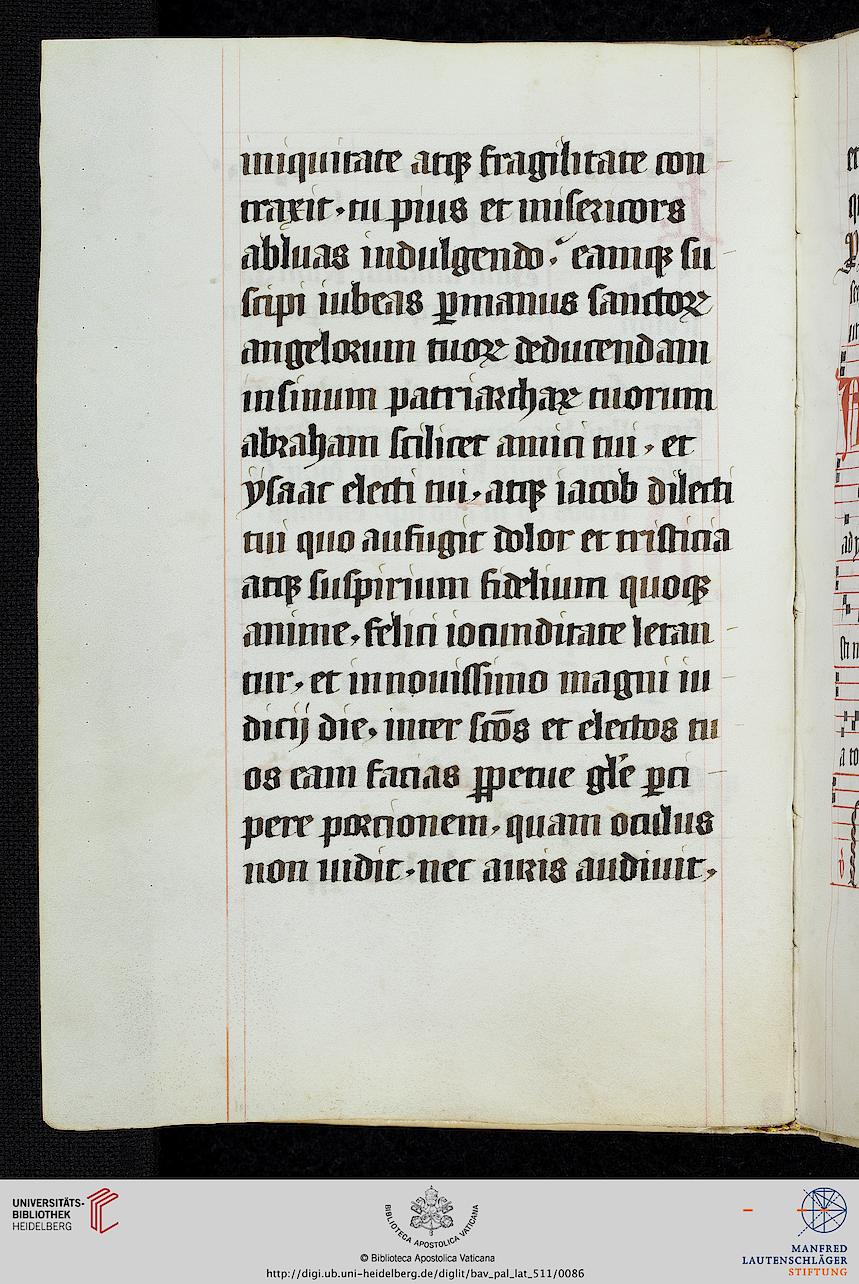 iniquitate atqꝫ fragilitate con
traxit · tu pius et misericors
abluas indulgendo : eamqꝫ su
scipi iubeas ꝑmanus sanctoꝝ
angelorum tuoꝝ deducendam
insinum patriarchaꝝ tuorum
abraham scilicet amici tui · et
ysaac electi tui · atqꝫ iacob dilecti
tui quo aufugit dolor et tristicia
atqꝫ suspirium fidelium quoqꝫ
anime · felici iocunditate letan
tur · et innouissimo magni iu
dicij die · inter scōs et electos tu
os eam facias ꝑpetue gl̄e ꝑci
pere porcionem · quam oculus
non uidit · nec auris audiuit ·
UNIVERSITÄTS-
BIBLIOTHEK
HEIDELBERG
BIBLIOTECA APOSTOLICA VATICANA
© Biblioteca Apostolica Vaticana
http://digi.ub.uni-heidelberg.de/diglit/bav_pal_lat_511/0086
MANFRED
LAUTENSCHLÄGER
STIFTUNG